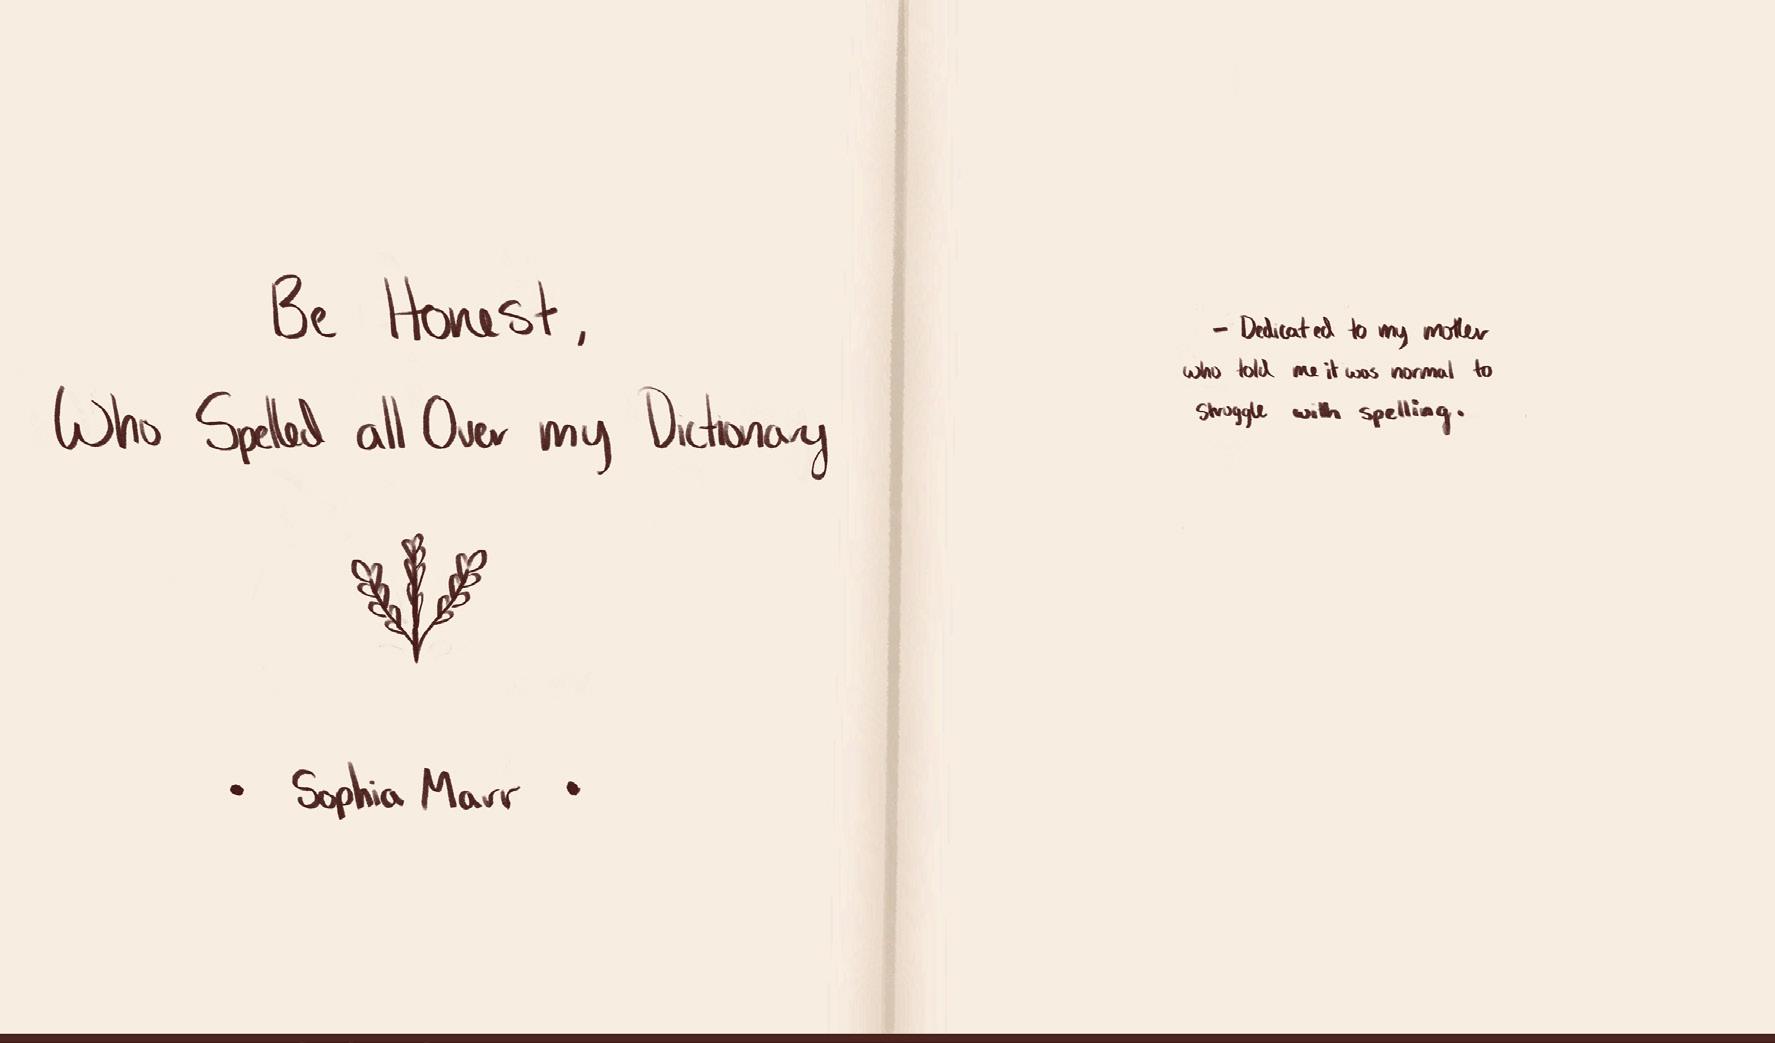 Be Honest,
Who Spelled all Over my Dictionary
• Sophia Marr •
- Dedicated to my mother
who told me it was normal to
struggle with spelling.